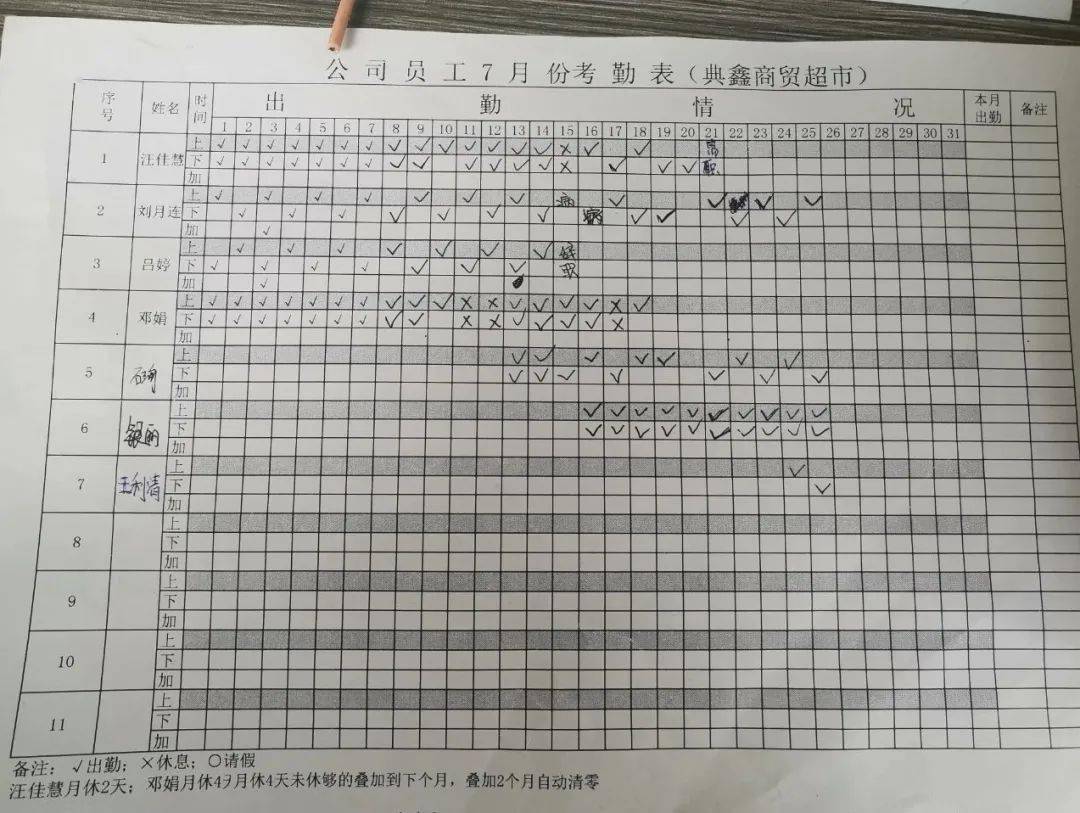 公司员工7月份考勤表(典鑫商贸超市)
序号 姓名 时间 出勤情况 本月出勤 备注
1 2 3 4 5 6 7 8 9 10 11 12 13 14 15 16 17 18 19 20 21 22 23 24 25 26 27 28 29 30 31
1 汪佳慧 上 √ √ √ √ √ √ √ √ √ √ √ √ √ √ × √ √ 离
下 √ √ √ √ √ √ √ √ √ √ √ √ √ × √ √ √ 职
加
2 刘月连 上 √ √ √ √ √ √ √ 病 √ √ √ √
下 √ √ √ √ √ √ √ √ √ √ √
加 √
3 吕婷 上 √ √ √ √ √ √ √ 辞
下 √ √ √ √ √ √ √ 职
加 √
4 邓娟 上 √ √ √ √ √ √ √ √ √ √ × × √ √ √ √ × √
下 √ √ √ √ √ √ √ √ √ × × √ √ √ √ ×
加
5 上 √ √ √ √ √ √ √
下 √ √ √ √ √ √ √
加
6 银丽 上 √ √ √ √ √ √ √ √ √ √
下 √ √ √ √ √ √ √ √ √ √
加
7 王利清 上 √
下 √
加
8 上
下
加
9 上
下
加
10 上
下
加
11 上
下
加
备注: √出勤; ×休息; ○请假
汪佳慧月休2天; 邓娟月休4 月休4天未休够的叠加到下个月, 叠加2个月自动清零